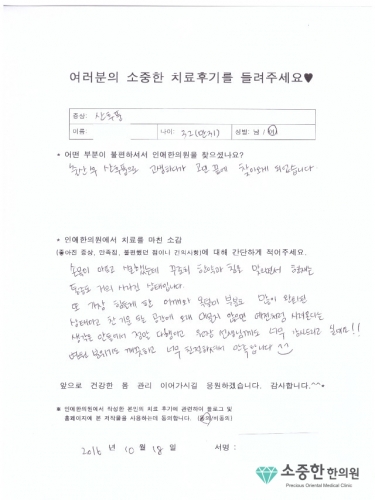 여러분의 소중한 치료후기를 들려주세요♥
증상: 산후풍
이름: 나이: 32(만31) 성별: 남 / 여
* 어떤 부분이 불편하셔서 인애한의원을 찾으셨나요?
출산 후 산후풍으로 고생하다가 고민 끝에 찾아오게 되었습니다
* 인애한의원에서 치료를 마친 소감
(좋아진 증상, 만족점, 불편했던 점이나 건의사항)에 대해 간단하게 적어주세요.
손목이 아프고 시렸는데 꾸준히 한약과 침을 맞으면서 현재는
통증도 거의 사라진 상태입니다.
또 가장 힘들게 한 어깨와 목덜미 부분도 많이 완화된
상태이고 찬 기운 있는 공간에 오래 있지 않으면 예전처럼 시려온다는
생각은 안들어서 정말 다행이고 원장 선생님께도 너무 감사드리고 싶네요!!
병원 분위기도 깨끗하고 너무 친절하셔서 만족합니다 ^^
앞으로 건강한 몸 관리 이어가시길 응원하겠습니다. 감사합니다.^^*
※ 인애한의원에서 작성한 본인의 치료 후기에 관련하여 블로그 및
홈페이지에 본 저작물을 사용하는데 동의합니다. (동의/비동의)
2016 년 10 월 18 일 서명 :
소중한한의원
Precious Oriental Medical Clinic